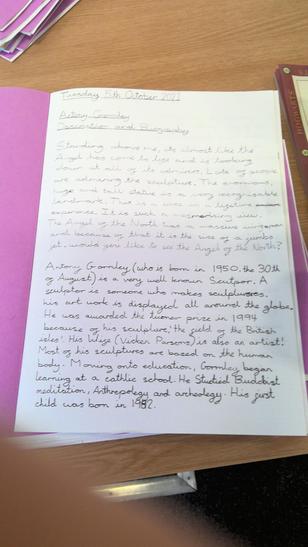 Tuesday 5th October 2021
Antony Gormley
Description and Biography
Standing above me, its almost like the
Angel has come to life and is looking
down at all of its admirers. Lots of people
are admiring the sculpture. The enormous,
huge and tall statue is a very recognisable
landmark. This is a once in a lifetime
experience. It is such a mesmerising view.
The Angel of the North has a massive wingspan
and because of that it is the size of a jumbo
jet. would you like to see the Angel of the North?
Antony Gormley (who is born in 1950, the 30th
of August) is a very well known Sculptor. A
sculptor is someone who makes sculptures.
his art work is displayed all around the globe.
He was awarded the turner prize in 1994
because of his sculpture, 'the field of the British
isles'. His Wife (Vicken Parsons) is also an artist!
Most of his sculptures are based on the human
body. Moving onto education, Gormley began
learning at a cathlic school. He Studied Buddist
meditation, Anthropology and archeology. His first
child was born in 1982.